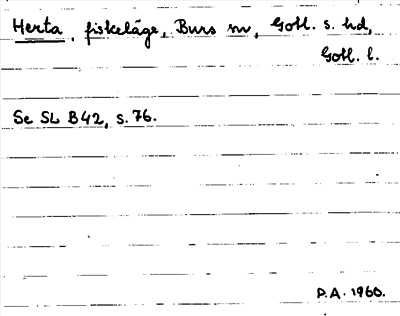 Herta, fiskeläge, Burs sn, Gotl. s. hd,
Gotl. l.
Se SL B42, s. 76.
P.A. 1960.